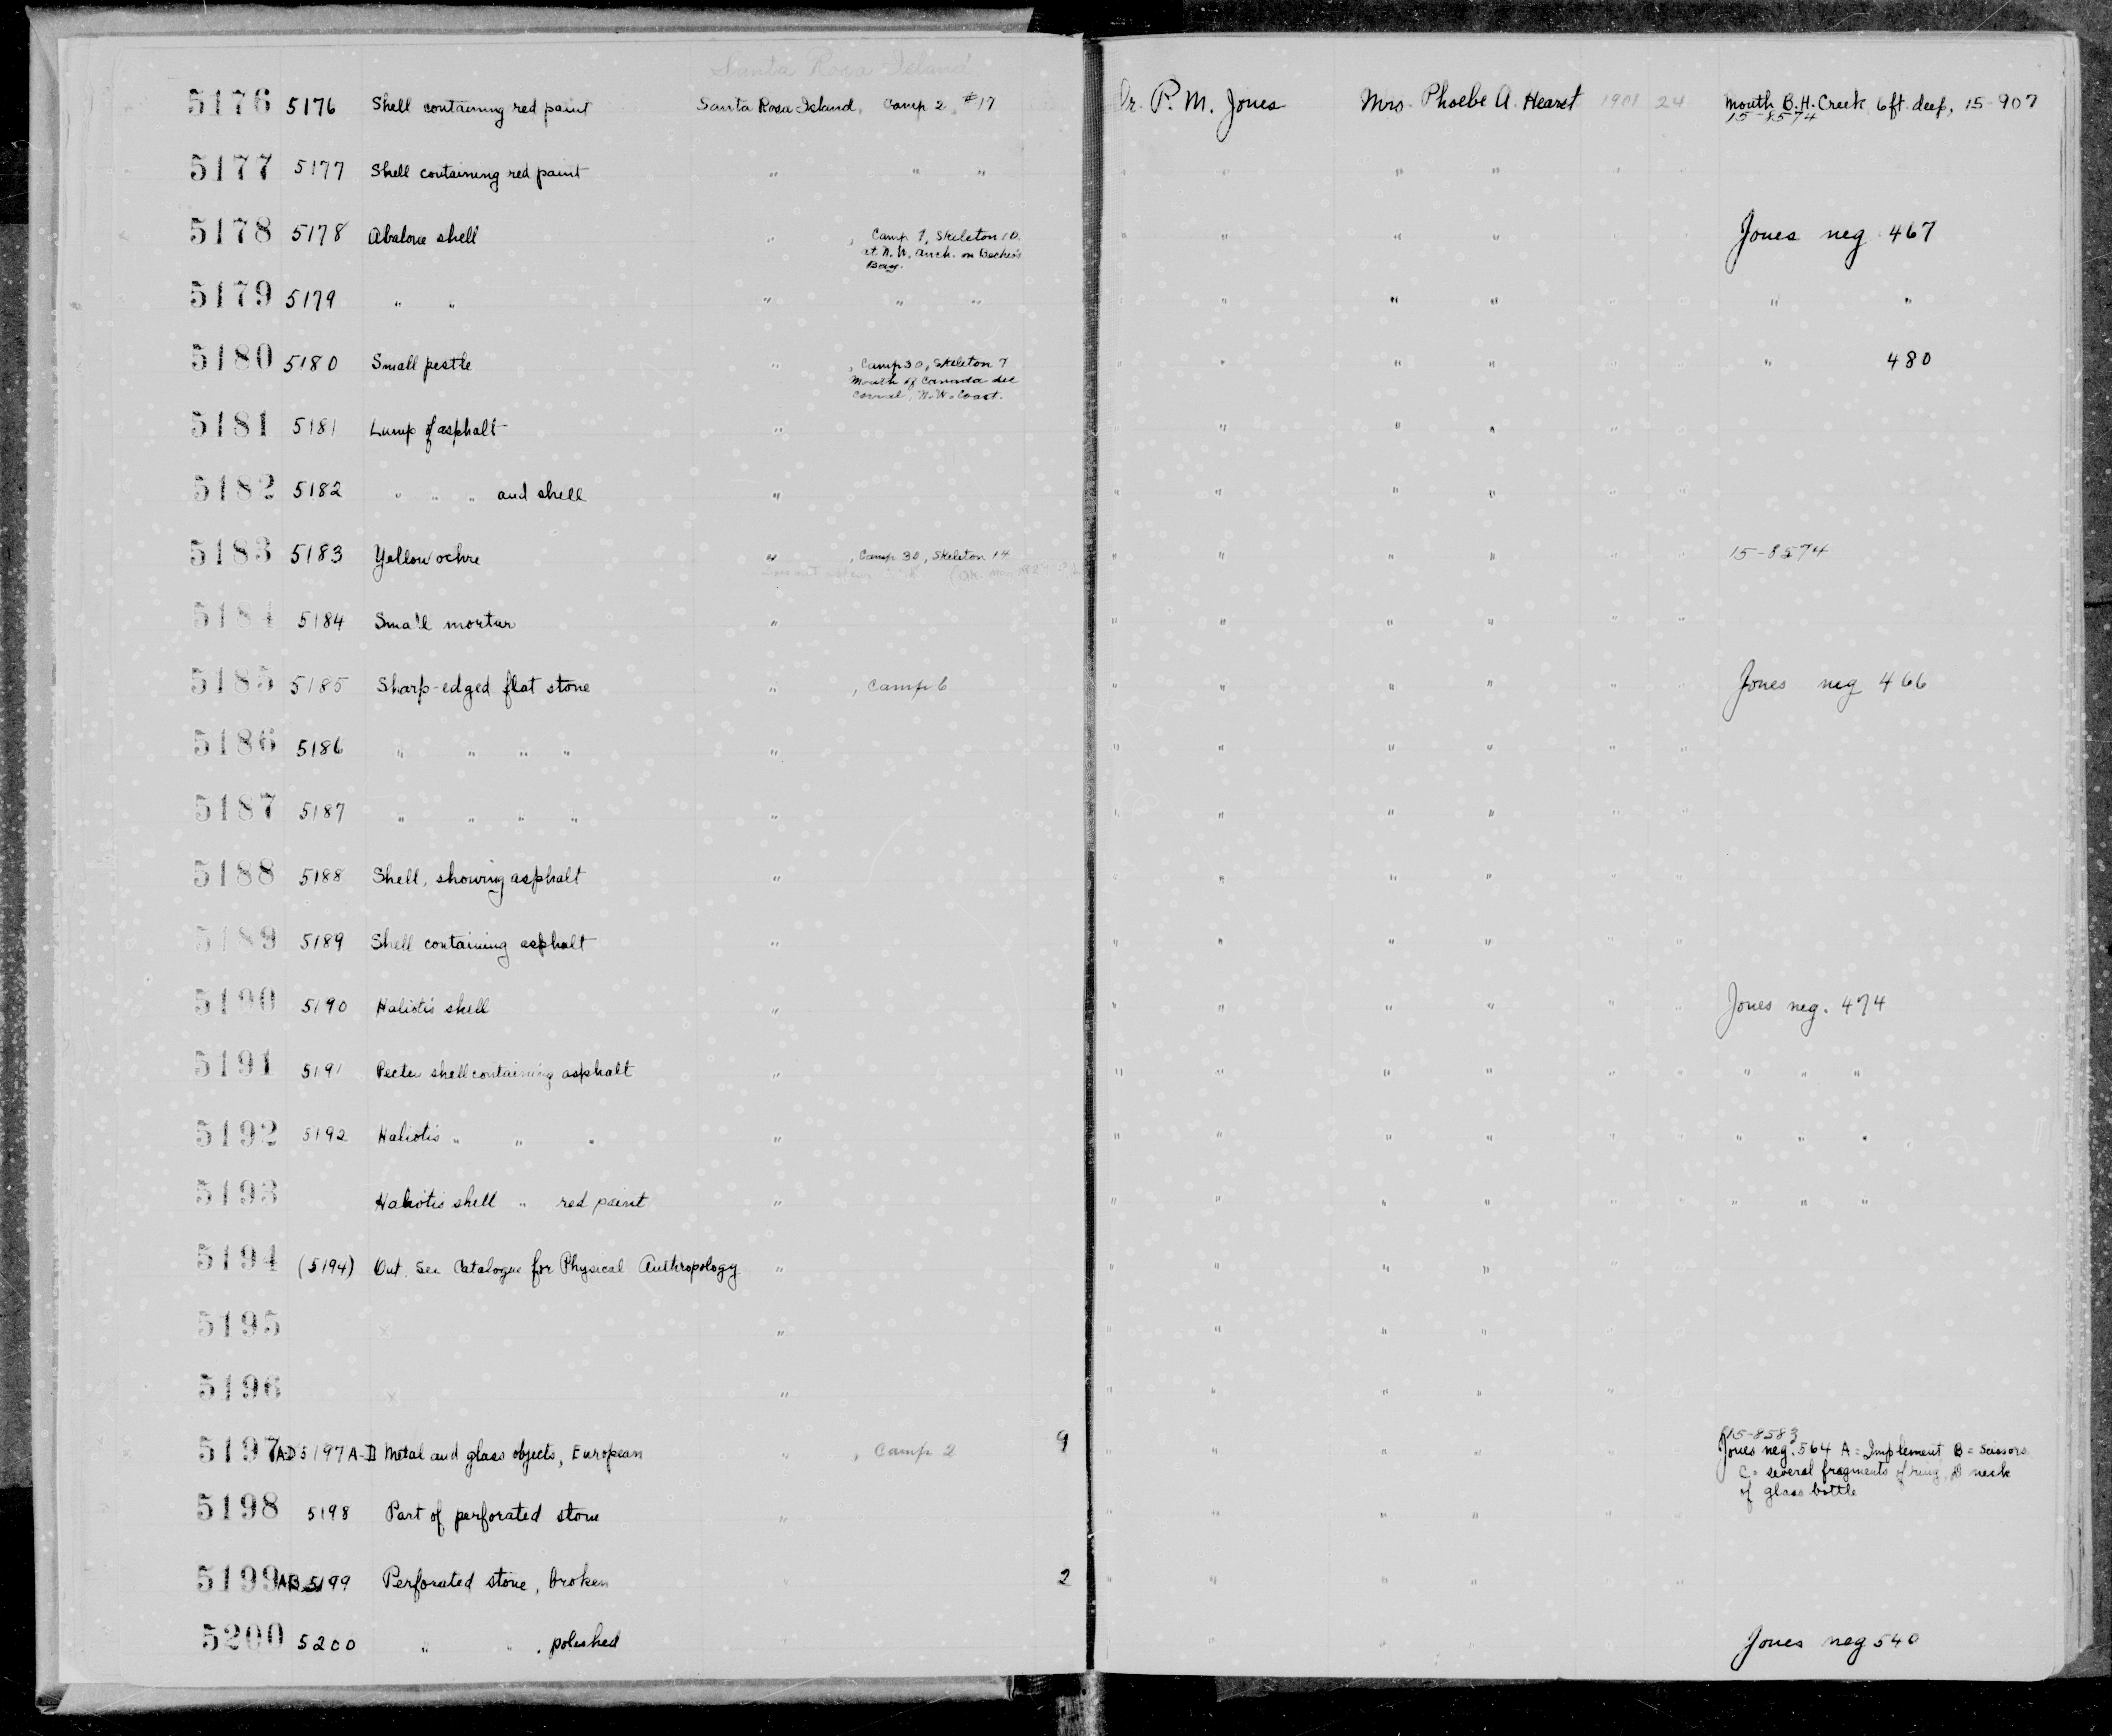 Santa Rosa Island.
5176 5176 Shell containing red paint Santa Rosa Island, Camp 2, #17 Dr. P. M. Jones Mrs. Phoebe A. Hearst 1901 24 Mouth B.H. Creek 6ft. deep, 15-907
15-8574
5177 5177 Shell containing red paint " " " " " " " "
5178 5178 Abalone shell " , Camp 7, Skeleton 10 " " " " " Jones neg 467
at N.W. anch. on Becher's
Bay.
5179 5179 " " " " " " " " " " " "
5180 5180 Small pestle " , Camp 30, Skeleton 7 " " " " " " 480
Mouth of Canada del
Corral, N.W. Coast.
5181 5181 Lump of asphalt " " " " " "
5182 5182 " " " and shell " " " " " " "
5183 5183 Yellow ochre " , Camp 30, Skeleton 14 " " " " " " 15-8574
5184 5184 Small mortar " " " " " " "
5185 5185 Sharp-edged flat stone " , Camp 6 " " " " " " Jones neg 466
5186 5186 " " " " " " " " " " "
5187 5187 " " " " " " " " " " "
5188 5188 Shell, showing asphalt " " " "
5189 5189 Shell containing asphalt " " " " " " "
5190 5190 Haliotis shell " " " " " " " Jones neg. 474
5191 5191 Pecten shell containing asphalt " " " " " " " " " "
5192 5192 Haliotis " " " " " " " " " " " " "
5193 Haliotis shell " red paint " " " " " " " " " "
5194 (5194) Out. See Catalogue for Physical Anthropology " " " " " " "
5195 x " " " " " " "
5196 x " " " " " "
15-8583
5197 A-D 5197 A-D Metal and glass objects, European " , Camp 2 9 " " " " " " Jones neg. 564 A = Implement, B = Scissors
C = several fragments of ring, D neck
of glass bottle
5198 5198 Part of perforated stone " " " " " " "
5199 AB 5199 Perforated stone, broken " 2 " " " " " "
5200 5200 " " , polished " " " " " " Jones neg 540